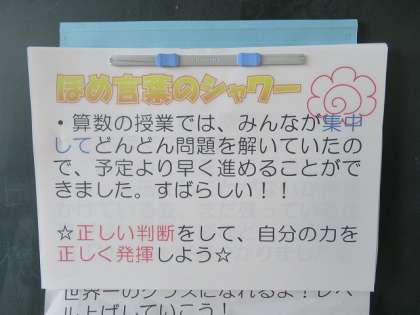 ほめ言葉のシャワー
・算数の授業では、みんなが集中
してどんどん問題を解いていたの
で、予定より早く進めることがで
きました。すばらしい！！
☆正しい判断をして、自分の力を
正しく発揮しよう☆
世界一のクラスになれるよ！レベ
ル上げしていこう！